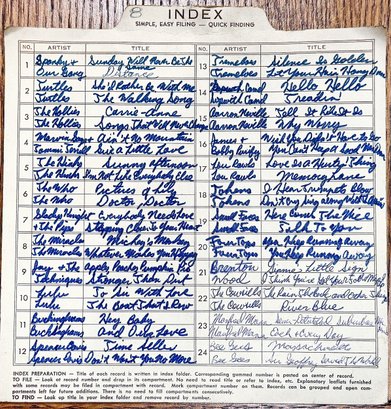 8
INDEX
SIMPLE, EASY FILING — QUICK FINDING
NO. ARTIST TITLE NO. ARTIST TITLE
1 Spanky & Sunday Will Never Be The Same
Our Gang Distance
2 Turtles She'd Rather Be With Me
Turtles The Walking Song
3 The Hollies Carrie-Anne
The Hollies Signs That Will Never Change
4 Marvin Gaye & Ain't No Mountain
Tammi Terrell Give a Little Love
5 The Kinks Sunny Afternoon
The Kinks I'm Not Like Everybody Else
6 The Who Pictures of Lily
The Who Doctor Doctor
7 Gladys Knight Everybody Needs Love
& The Pips Stepping Closer To Your Heart
8 The Miracles Mickey's Monkey
The Miracles Whatever Makes You Happy
9 Jay & The Apples Peaches Pumpkin Pie
Techniques Stronger Than Dirt
10 Lulu To Sir With Love
Lulu The Boat That I Row
11 Buckinghams Hey Baby
Buckinghams And Our Love
12 Spencer Davis Time Seller
Spencer Davis Don't Want You No More
13 Tremeloes Silence Is Golden
Tremeloes Let Your Hair Hang Down
14 Sopwith Camel Hello Hello
Sopwith Camel Treadin'
15 Aaron Neville Tell It Like It Is
Aaron Neville Why Worry
16
17 Lou Rawls Love Is a Hurtin' Thing
Lou Rawls Memory Lane
18 Tokens I Hear Trumpets Blow
Tokens Don't Cry Sing Along With The Music
19 Small Faces Here Comes The Nice
Small Faces Talk To You
20 Four Tops You Keep Running Away
Four Tops
21 Brenton Gimme Little Sign
Wood I Think You've Got Your Fools Mixed Up
22 The Cowsills The Rain The Park and Other Things
The Cowsills River Blue
23 Manfred Mann Semi-Detached Suburban
Manfred Mann Each & Every Day
24 Bee Gees Massachusetts
Bee Gees Sir Geoffrey Saved The World
INDEX PREPARATION — Title of record is written in index folder. Corresponding gummed number is posted on center of record.
TO FILE — Look at record number and drop in its compartment. No need to read title or refer to index, etc. Explanatory leaflets furnished with some records may be filed in compartment with record. Mark compartment number on them. Records can be grouped and open compartments left for future additions. There is no need to fill compartments consecutively.
TO FIND — Look up title in your index folder and match record by number.